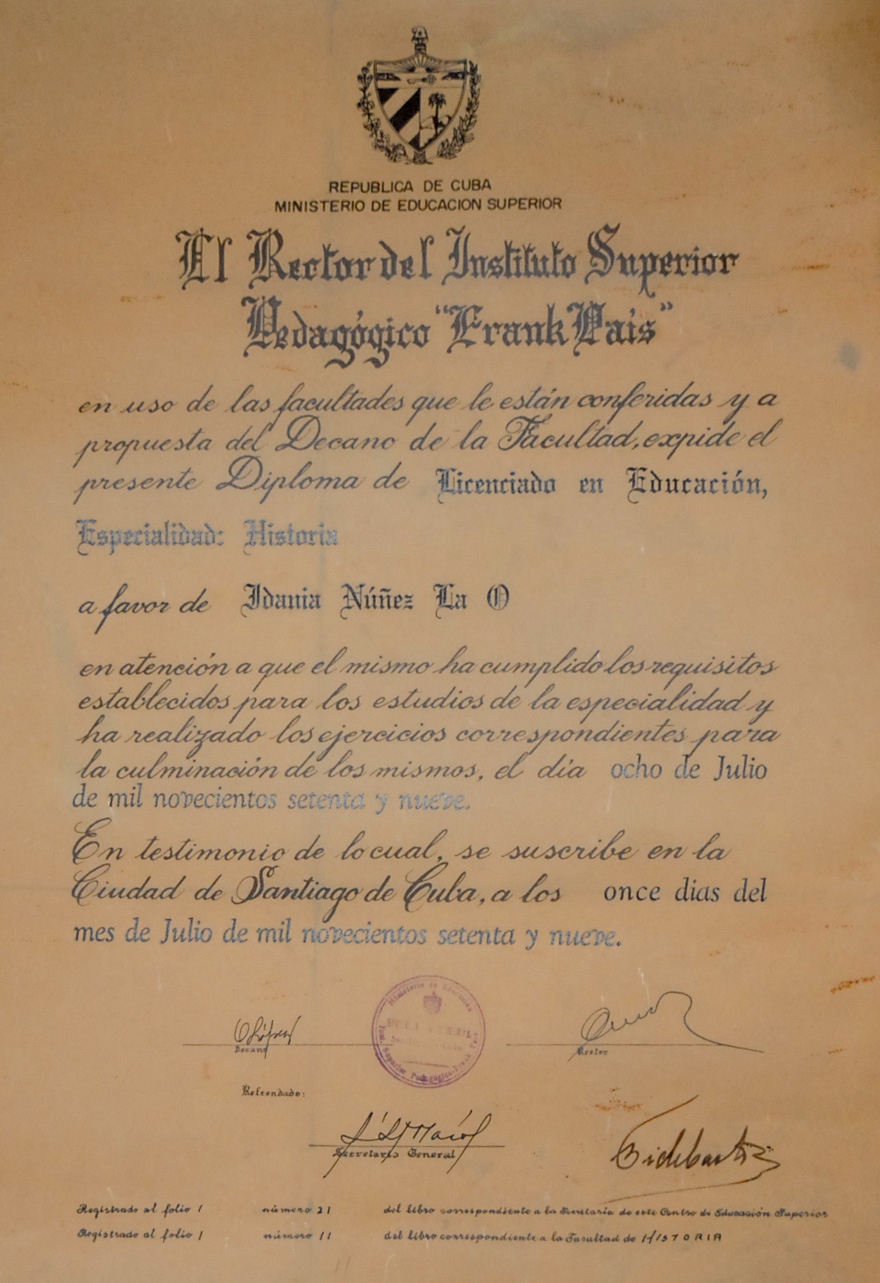 REPUBLICA DE CUBA
MINISTERIO DE EDUCACION SUPERIOR
El Rector del Instituto Superior
Pedagógico "Frank País"
en uso de las facultades que le están conferidas y a
propuesta del Decano de la Facultad, expide el
presente Diploma de Licenciado en Educación,
Especialidad: Historia
a favor de Idania Núñez La O
en atención a que el mismo ha cumplido los requisitos
establecidos para los estudios de la especialidad y
ha realizado los ejercicios correspondientes para
la culminación de los mismos, el día ocho de Julio
de mil novecientos setenta y nueve.
En testimonio de lo cual, se suscribe en la
Ciudad de Santiago de Cuba, a los once dias del
mes de Julio de mil novecientos setenta y nueve.
Ministerio de Educacion
Superior Pedagógico Frank País
Decano
Rector
Refrendado:
Secretario General
Registrado al folio 1 número 21 del libro correspondiente a la Secretaría de este Centro de Educación Superior
Registrado al folio 1 número 11 del libro correspondiente a la Facultad de HISTORIA